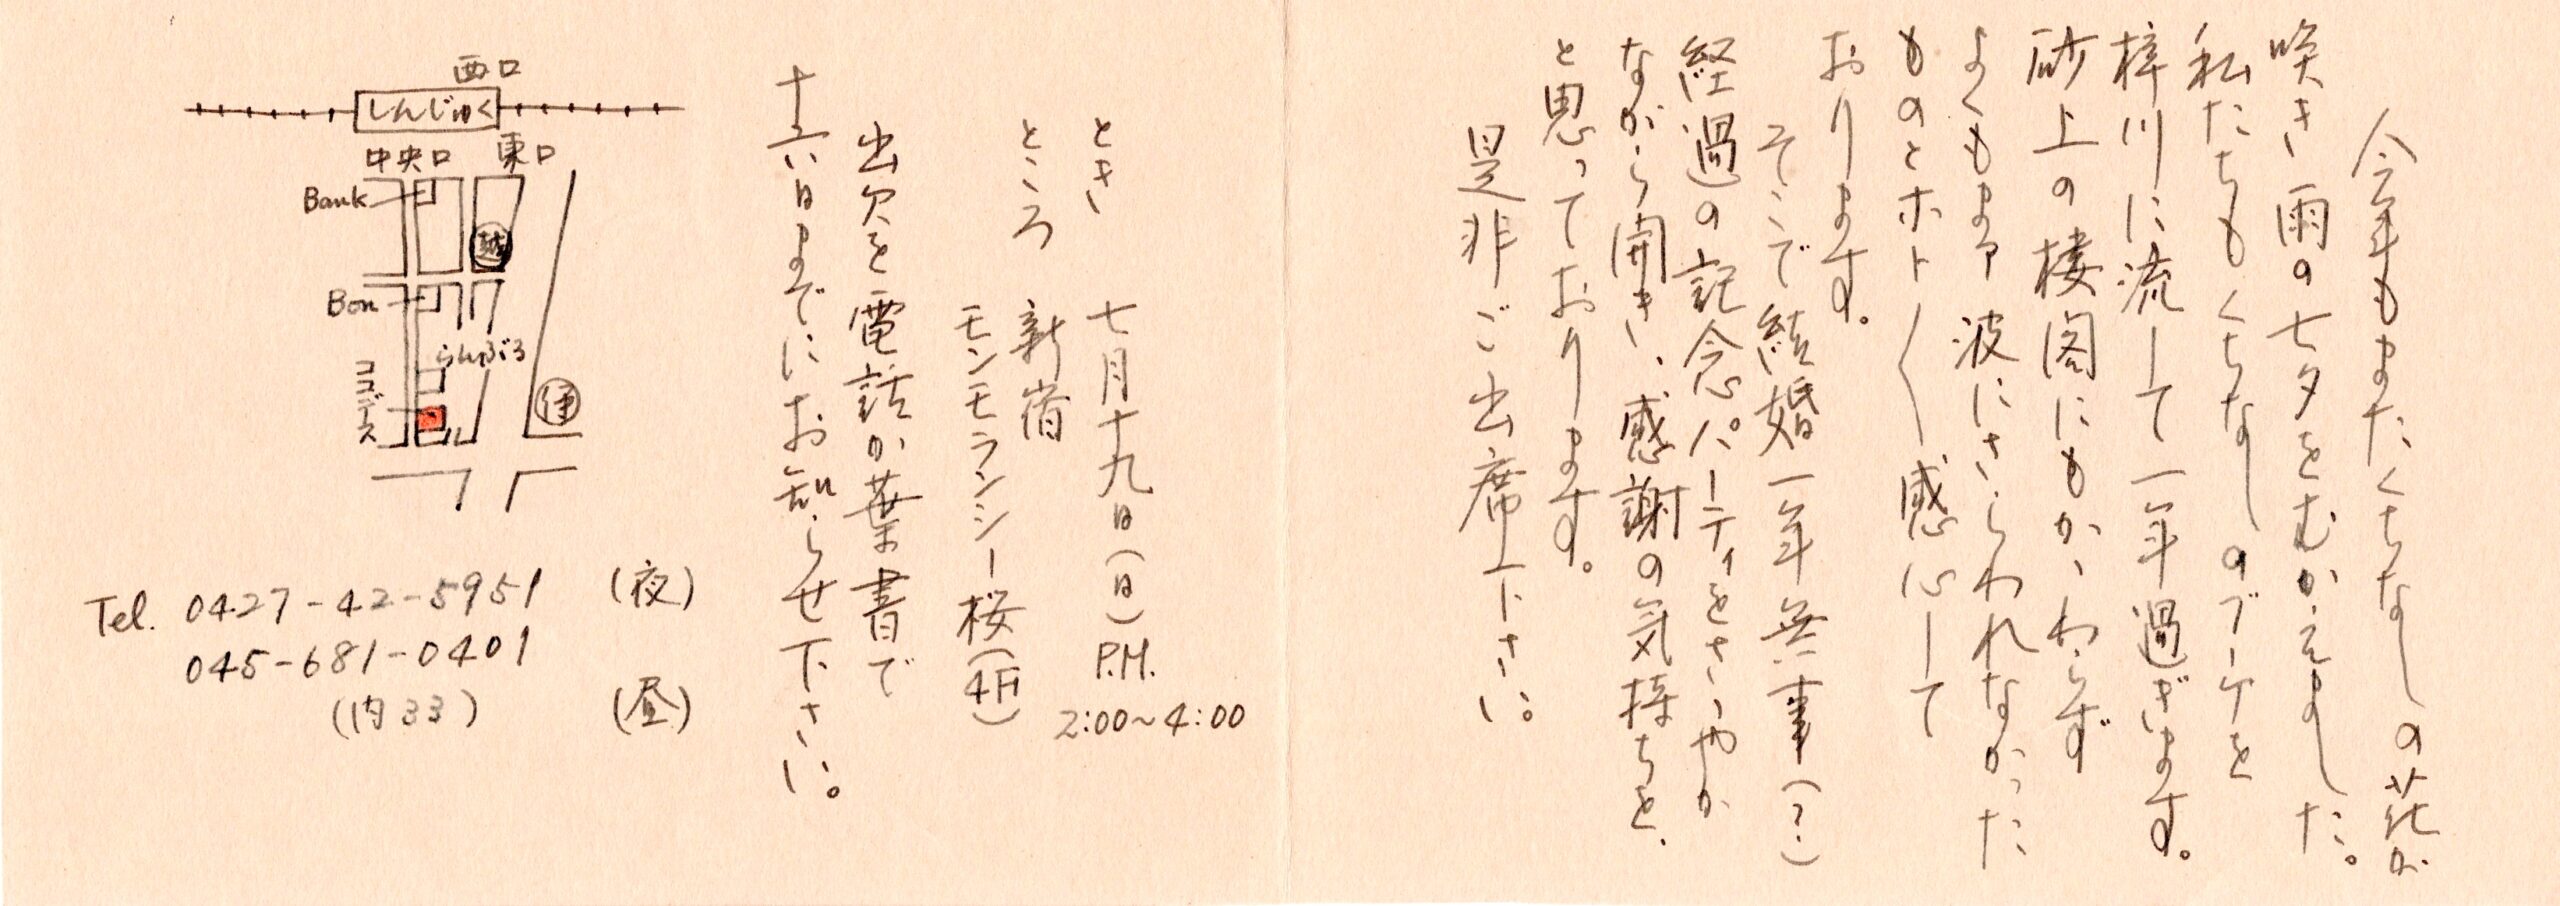 今年もまたくちなしの花が
咲き雨の七夕をむかえました。
私たちもくちなしのブーケを
梓川に流して一年過ぎます。
砂上の楼閣にもかゝわらず
よくもまア波にさらわれなかった
ものとホト〱感心して
おります。
そこで結婚一年無事(?)
経過の記念パーティをさゝやか
ながら開き、感謝の気持ちを、
と思っております。
是非ご出席下さい。
とき 七月十九日(日) P.M. 2:00~4:00
ところ 新宿
モンモランシー桜(4F)
出欠を電話か葉書で
十六日までにお知らせ下さい。
西口
しんじゅく
中央口 東口
Bank
越
Bon
らんぶる
ココデース
伊
Tel. 0427-42-5951 (夜)
045-681-0401
(内33) (昼)